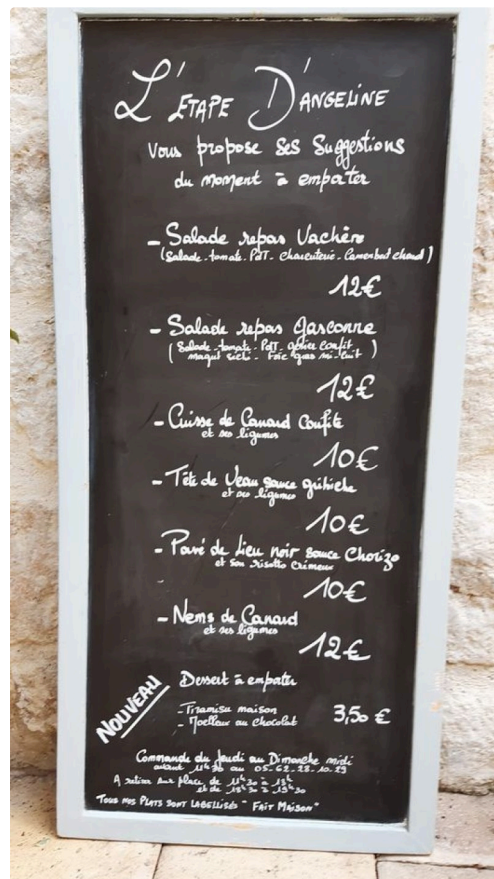 L'ETAPE D'ANGELINE
Vous propose ses Suggestions
du moment à emporter
- Salade repas Vachère
(Salade - tomate - PdT - charcuterie - Camembert chaud)
12€
- Salade repas Gasconne
(Salade - tomate - PdT - gésier confit
magret séché - Foie gras mi-cuit)
12€
- Cuisse de Canard Confite
et ses légumes
10€
- Tête de Veau sauce gribiche
et ses légumes
10€
- Pavé de Lieu noir sauce Chorizo
et son risotto Crémeux
10€
- Nems de Canard
et ses légumes
12€
NOUVEAU
Dessert à emporter
- Tiramisu maison
- Moelleux au Chocolat
3,50 €
Commande du Jeudi au Dimanche midi
avant 11h30 au 05-62-28-10-29
A retirer sur place de 11h30 à 13h
et de 18h30 à 19h30
TOUS NOS PLATS SONT LABELLISÉS "FAIT MAISON"